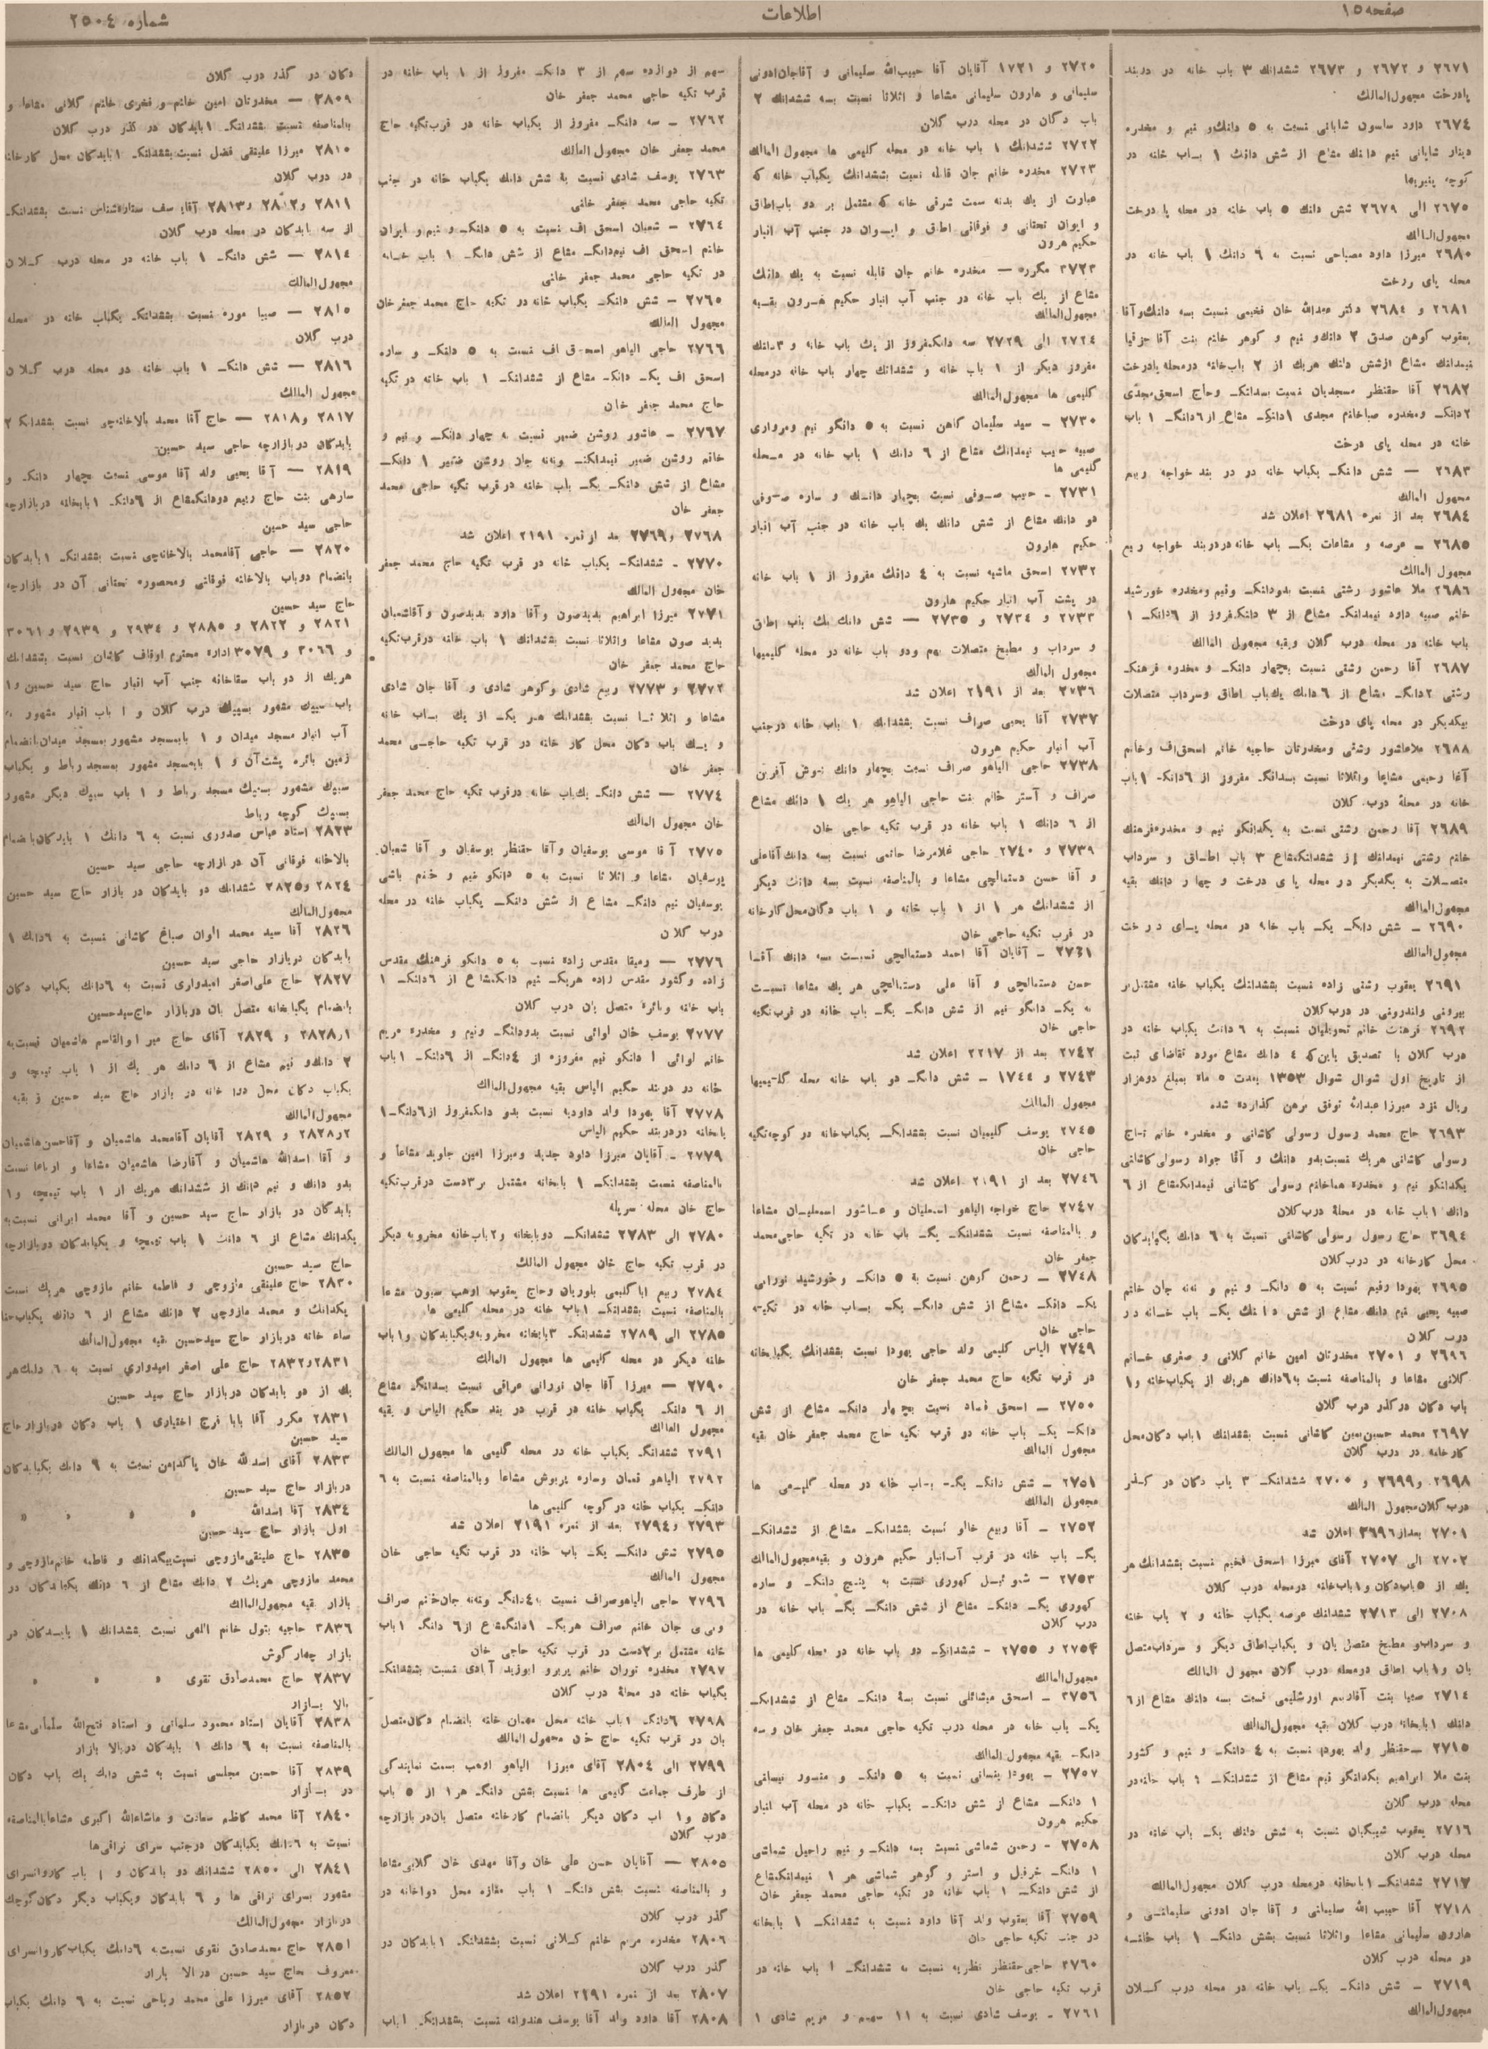 صفحه ۱۵
اطلاعات
شماره ۲۵۰۴
۲۶۷۱ و ۲۶۷۲ و ۲۶۷۳ ششدانك ۳ باب خانه در دربند
پادرخت مجهول‌المالك
۲۶۷۴ داود ساسون شابانی نسبت به ۵ دانك‌و نیم و مخدره
دینار شابانی نیم دانك مشاع از شش دانك ۱ باب خانه در
کوچه پنبریها
۲۶۷۵ الی ۲۶۷۹ شش دانك ۵ باب خانه در محله پا درخت
مجهول‌المالك
۲۶۸۰ میرزا داود مصباحی نسبت به ۶ دانك ۱ باب خانه در
محله پای درخت
۲۶۸۱ و ۲۶۸۴ دکتر عبدالله خان فخیمی نسبت بسه دانك‌وآقا
یعقوب کوهن صدق ۲ دانك‌و نیم و کوهر خانم بنت آقا حزقیا
نیمدانك مشاع ازشش دانك هریك از ۲ باب‌خانه درمحله پادرخت
۲۶۸۲ آقا حقنظر مسجدیان نسبت بسدانك‌ وحاج اسحق‌مجدی
۲دانك‌ ومخدره صباخانم مجدی ۱دانك‌ مشاع از۶دانك‌ ۱ باب
خانه در محله پای درخت
۲۶۸۳ — شش دانك‌ یکباب خانه در در بند خواجه ربیع
مجهول المالك
۲۶۸۴ بعد از نمره ۲۶۸۱ اعلان شد
۲۶۸۵ – عرصه و مقاعات یك‌ باب خانه دردربند خواجه ربیع
مجهول المالك
۲۶۸۶ ملا عاشور رشتی نسبت بدودانك‌ ونیم ومخدره خورشید
خانم صبیه داود نیمدانك‌ مشاع از ۳ دانك‌مفروز از ۶دانك‌ ۱
باب خانه در محله درب گلان وبقیه مجهول المالك
۲۶۸۷ آقا رحمن رشتی نسبت بچهار دانك‌ و مخدره فرهنك
رشتی ۲دانك‌ مشاع از ۶دانك یك‌باب اطاق وسرداب متصلات
بیکدیگر در محله پای درخت
۲۶۸۸ ملاعاشور رشتی ومخدرتان حاجیه خانم اسحق‌اف وخانم
آغا رحیمی مشاعا واثلاثا نسبت بسدانك‌ مفروز از ۶دانك‌ ۱باب
خانه در محلهٔ درب کلان
۲۶۸۹ آقا رحمن رشتی نسبت به یکدانکو نیم و مخدره‌فرهنك
خانم رشتی نیمدانك از ششدانك‌مشاع ۳ باب اطاق و سرداب
متصلات به یکدیگر در محله پای درخت و چهار دانك بقیه
مجهول‌المالك
۲۶۹۰ – شش دانك‌ یك‌ باب خانه در محله پای درخت
مجهول‌المالك
۲۶۹۱ یعقوب رشتی زاده نسبت بششدانك یکباب خانه مشتمل‌بر
بیرونی واندرونی در درب کلان
۲۶۹۲ فرهنك خانم تحویلیان نسبت به ۶ دانك یکباب خانه در
درب کلان با تصدیق باینکه ٤ دانك مشاع مورد تقاضای ثبت
از تاریخ اول شوال شوال ۱۳۵۳ بمدت ۵ ماه بمبلغ دوهزار
ریال نزد میرزا عبدالله توفیق برهن گذارده شده
۲۶۹۳ حاج محمد رسول رسولی کاشانی و مخدره خانم تاج
رسولی کاشانی هریك نسبت‌بدو دانك و آقا جواد رسولی‌کاشانی
یکدانکو نیم و مخدره هماخانم رسولی کاشانی نیمدانکمشاع از ۶
دانك ۱باب خانه در محلهٔ درب‌کلان
۲۶۹٤ حاج رسول رسولی کاشانی نسبت به ۶ دانك یکبابدکان
محل کارخانه در درب‌کلان
۲۶۹۵ یهودا رفیع نسبت به ۵ دانك‌ و نیم و ننه جان خانم
صبیه یحیی نیم دانك مشاع از شش دانك یك‌ باب خانه در
درب کلان
۲۶۹۶ و ۲۷۰۱ مخدرتان امین خانم کلانی و صغری خانم
کلانی مشاعا و بالمناصفه نسبت به۶دانك هریك از یکباب‌خانه و۱
باب دکان درگذر درب گلان
۲۶۹۷ محمد حسین‌یمین کاشانی نسبت بششدانك ۱باب دکان‌محل
کارخانه در درب گلان
۲۶۹۸ و۲۶۹۹ و ۲۷۰۰ ششدانك‌ ۳ باب دکان در گذر
درب‌کلان‌مجهول المالك
۲۷۰۱ بعداز۲۶۹۶ اعلان شد
۲۷۰۲ الی ۲۷۰۷ آقای میرزا اسحق فخیم نسبت بششدانك‌هر
یك از ۵باب‌دکان و۱باب‌خانه درمحله درب گلان
۲۷۰۸ الی ۲۷۱۳ ششدانك عرصه یکباب خانه و ۲ باب خانه
و سرداب‌و مطبخ متصل‌بان و یکباب‌اطاق دیگر و سرداب‌متصل
بان و۱باب اطاق درمحله درب گلان مجهول المالك
۲۷۱۴ صبیا بنت آقارحیم اورشلیمی نسبت بسه دانك مشاع از۶
دانك ۱بابخانه درب کلان بقیه مجهول‌المالك
۲۷۱۵ –حقنظر ولد یهودا نسبت به ٤ دانك‌ و نیم و کشور
بنت ملا ابراهیم یکدانکو نیم مشاع از ششدانك‌ ۱ باب خانه‌در
محله درب گلان
۲۷۱۶ یعقوب شیبکیان نسبت به شش دانك یك‌ باب خانه در
محله درب گلان
۲۷۱۷ ششدانك‌ ۱بابخانه درمحله درب کلان مجهول‌المالك
۲۷۱۸ آقا حبیب الله سلیمانی و آقا جان ادونی سلیمانی و
هارون سلیمانی مشاعا واثلاثا نسبت بشش دانك‌ ۱ باب خانه
در محله درب کلان
۲۷۱۹ – شش دانك‌ یك‌ باب خانه در محله درب کلان
مجهول‌المالك
۲۷۲۰ و ۱۷۲۱ آقایان آقا حبیب‌الله سلیمانی و آقاجان‌ادونی
سلیمانی و هارون سلیمانی مشاعا و اثلاثا نسبت بسه ششدانك ۲
باب دکان در محله درب گلان
۲۷۲۲ ششدانك ۱ باب خانه در محله کلیمی ها مجهول المالك
۲۷۲۳ مخدره خانم جان قابله نسبت بششدانك یکباب خانه که
عبارت از یك بدنه سمت شرقی خانه که مشتمل بر دو باب‌اطاق
و ایوان تحتانی و فوقانی اطاق و ایوان در جنب آب انبار
حکیم هرون
۲۷۲۳ مکرر — مخدره خانم جان قابله نسبت به یك دانك
مشاع از یك باب خانه در جنب آب انبار حکیم هرون بقیه
مجهول‌المالك
۲۷۲٤ الی ۲۷۲۹ سه دانك‌مفروز از یك باب خانه و ۳دانك
مفروز دیگر از ۱ باب خانه و ششدانك چهار باب خانه درمحله
کلیمی ها مجهول‌المالك
۲۷۳۰ – سید سلیمان کاهن نسبت به ۵ دانگو نیم ومرواری
صبیه حبیب نیمدانك مشاع از ۶ دانك ۱ باب خانه در محله
گلیمی ها
۲۷۳۱ – حبیب صوفی نسبت بچهار دانك و ساره صوفی
دو دانك مشاع از شش دانك یك باب خانه در جنب آب انبار
حکیم هارون
۲۷۳۲ اسحق ماشیه نسبت به ٤ دانك مفروز از ۱ باب خانه
در پشت آب انبار حکیم هارون
۲۷۳۳ و ۲۷۳٤ و ۲۷۳۵ — شش دانك یك باب اطاق
و سرداب و مطبخ متصلات بهم ودو باب خانه در محله کلیمیها
مجهول المالك
۲۷۳۶ بعد از ۲۱۹۱ اعلان شد
۲۷۳۷ آقا یحیی صراف نسبت بششدانك ۱ باب خانه درجنب
آب انبار حکیم هرون
۲۷۳۸ حاجی الیاهو صراف نسبت بچهار دانك نوش آفرین
صراف و آستر خانم بنت حاجی الیاهو هر یك ۱ دانك مشاع
از ۶ دانك ۱ باب خانه در قرب تکیه حاجی خان
۲۷۳۹ و ۲۷٤۰ حاجی غلامرضا حاتمی نسبت بسه دانك‌آقاعلی
و آقا حسن دستمالچی مشاعا و بالمناصفه نسبت بسه دانك دیگر
از ششدانك هر ۱ از ۱ باب خانه و ۱ باب دکان‌محل‌کارخانه
در قرب تکیه حاجی خان
۲۷٤۱ – آقایان آقا احمد دستمالچی نسبت سه دانك آقا
حسن دستمالچی و آقا علی دستمالچی هر یك مشاعا نسبت
به یك‌ دانگو نیم از شش دانك‌ یك‌ باب خانه در قرب‌تکیه
حاجی خان
۲۷٤۲ بعد از ۲۲۱۷ اعلان شد
۲۷٤۳ و ۱۷٤٤ – شش دانك‌ دو باب خانه محله گلیمیها
مجهول المالك
۲۷٤۵ یوسف گلیمیان نسبت بششدانك‌ یکباب‌خانه در کوچه‌تکیه
حاجی خان
۲۷٤۶ بعد از ۲۱۹۱ اعلان شد
۲۷٤۷ حاج خواجه الیاهو اسمعلیان و عاشور اسمعلیان مشاعا
و بالمناصفه نسبت ششدانك‌ یك‌ باب خانه در تکیه حاجی‌محمد
جعفر خان
۲۷٤۸ – رحمن کرهن نسبت به ۵ دانك‌ و خورشید نورانی
یك‌ دانك‌ مشاع از شش دانك‌ یك‌ باب خانه در تکیه
حاجی خان
۲۷٤۹ الیاس کلیمی ولد حاجی یهودا نسبت بششدانك یکبابخانه
در قرب تکیه حاج محمد جعفر خان
۲۷۵۰ — اسحق فساد نسبت بچهار دانك‌ مشاع از شش
دانك‌ یك‌ باب خانه دو قرب تکیه حاج محمد جعفر خان بقیه
مجهول المالك
۲۷۵۱ – شش دانك‌ یك‌ باب خانه در محله گلیمی ها
مجهول المالك
۲۷۵۲ – آقا ربیع خالو نسبت بششدانك‌ مشاع از ششدانك‌
یك‌ باب خانه در قرب آب‌انبار حکیم هرون و بقیه‌مجهول‌المالك
۲۷۵۳ – شموئیل کهوری نسبت به پنج دانك‌ و ساره
کهوری یك‌ دانك‌ مشاع از شش دانك‌ یك‌ باب خانه در
درب کلان
۲۷۵٤ و ۲۷۵۵ – ششدانك‌ دو باب خانه در محله کلیمی ها
مجهول‌المالك
۲۷۵۶ – اسحق میشائلی نسبت بسهٔ دانك‌ مشاع از ششدانك‌
یك‌ باب خانه در محله درب تکیه حاجی محمد جعفر خان و سه
دانك‌ بقیه مجهول‌المالك
۲۷۵۷ – یهودا نیسانی نسبت به ۵ دانك‌ و منسور نیسانی
۱ دانك‌ مشاع از شش دانك‌ یکباب خانه در محله آب انبار
حکیم هرون
۲۷۵۸ – رحمن شماشی نسبت بسه دانك‌ و نیم راحیل شماشی
۱ دانك‌ خرفیل و استر و گوهر شماشی هر ۱ نیمدانك‌مشاع
از شش دانك‌ ۱ باب خانه در تکیه حاجی محمد جعفر خان
۲۷۵۹ آقا یعقوب ولد آقا داود نسبت به ششدانك‌ ۱ بابخانه
در جنب تکیه حاجی خان
۲۷۶۰ حاجی‌حقنظر نظریه نسبت به ششدانك‌ ۱ باب خانه در
قرب تکیه حاجی خان
۲۷۶۱ – یوسف شادی نسبت به ۱۱ سهیم و مریم شادی ۱
سهم از دوازده سهم از ۳ دانك‌ مفروز از ۱ باب خانه در
قرب تکیه حاجی محمد جعفر خان
۲۷۶۲ – سه دانك‌ مفروز از یکباب خانه در قرب‌تکیه حاج
محمد جعفر خان مجهول المالك
۲۷۶۳ یوسف شادی نسبت به شش دانك یکباب خانه در جنب
تکیه حاجی محمد جعفر خانی
۲۷۶٤ – شعبان اسحق اف نسبت به ۵ دانك‌ و نیم‌و ایران
خانم اسحق اف نیم‌دانك‌ مشاع از شش دانك‌ ۱ باب خانه
در تکیه حاجی محمد جعفر خانی
۲۷۶۵ – شش دانك‌ یکباب خانه در تکیه حاج محمد جعفرخان
مجهول المالك
۲۷۶۶ حاجی الیاهو اسحق اف نسبت به ۵ دانك‌ و ساره
اسحق اف یك‌ دانك‌ مشاع از ششدانك‌ ۱ باب خانه در تکیه
حاج محمد جعفر خان
۲۷۶۷ – عاشور روشن ضمیر نسبت به چهار دانك‌ و نیم و
خانم روشن ضمیر نیمدانك‌ وننه جان روشن ضمیر ۱ دانك‌
مشاع از شش دانك‌ یك‌ باب خانه در قرب تکیه حاجی محمد
جعفر خان
۲۷۶۸ و۲۷۶۹ بعد ازنمره ۲۱۹۱ اعلان شد
۲۷۷۰ – ششدانك‌ یکباب خانه در قرب تکیه حاج محمد جعفر
خان مجهول المالك
۲۷۷۱ میرزا ابراهیم بدیدصون وآقا داود بدیدصون وآقاشعبان
بدید صون مشاعا واثلاثا نسبت بششدانك ۱ باب خانه درقرب‌تکیه
حاج محمد جعفر خان
۲۷۷۲ و ۲۷۷۳ ربیع شادی وکوهر شادی و آقا جان شادی
مشاعا و اثلاثا نسبت بششدانك هر یك‌ از یك باب خانه
و یك باب دکان محل کار خانه در قرب تکیه حاجی محمد
جعفر خان
۲۷۷٤ — شش دانك‌ یك‌باب خانه درقرب تکیه حاج محمد جعفر
خان مجهول المالك
۲۷۷۵ آقا موسی یوسفیان وآقا حقنظر یوسفیان و آقا شعبان
یوسفیان مشاعا و اثلاثا نسبت به ۵ دانکو نیم و خانم باشی
یوسفیان نیم دانك‌ مشاع از شش دانك‌ یکباب خانه در محله
درب گلان
۲۷۷۶ — رمیقا مقدس زاده نسبت به ۵ دانکو فرهنك مقدس
زاده وکشور مقدس زاده هریك‌ نیم دانکمشاع از ۶دانك‌ ۱
باب خانه وبائره متصل بان درب گلان
۲۷۷۷ یوسف خان لوائی نسبت بدودانك‌ ونیم و مخدره مریم
خانم لوائی ۱ دانکو نیم مفروزه از ٤دانك‌ از ۶دانك‌ ۱باب
خانه در دربند حکیم الیاس بقیه مجهول‌المالك
۲۷۷۸ آقا یهودا ولد داودیه نسبت بدو دانکمفروز از۶دانك‌۱
بابخانه دردربند حکیم الیاس
۲۷۷۹ –آقایان میرزا داود جدید ومیرزا امین جاوید مشاعا و
بالمناصفه نسبت بششدانك‌ ۱ بابخانه مشتمل بر۳دست درقرب‌تکیه
حاج خان محله سرپله
۲۷۸۰ الی ۲۷۸۳ ششدانك‌ دوبابخانه و۲باب‌خانه مخروبه دیگر
در قرب تکیه حاج خان مجهول المالك
۲۷۸٤ ربیع اباکلیمی بلوریان وحاج یعقوب اوهب سبون مشاعا
بالمناصفه نسبت بششدانك‌ ۱باب خانه در محله کلیمی ها
۲۷۸۵ الی ۲۷۸۹ ششدانك‌ ۳بابخانه مخروبه‌ویکبابدکان و۱باب
خانه دیگر در محله کلیمی ها مجهول المالك
۲۷۹۰ — میرزا آقا جان نورانی عراقی نسبت بسدانك مشاع
از ۶ دانك‌ یکباب خانه در قرب در بند حکیم الیاس و بقیه
مجهول المالك
۲۷۹۱ ششدانك‌ یکباب خانه در محله گلیمی ها مجهول المالك
۲۷۹۲ الیاهو نعمان وساره پربوش مشاعا وبالمناصفه نسبت به ۶
دانك‌ یکباب خانه در کوچه کلیمی‌ها
۲۷۹۳ و۲۷۹٤ بعد از نمره ۲۱۹۱ اعلان شد
۲۷۹۵ شش دانك‌ یك‌ باب خانه در قرب تکیه حاجی خان
مجهول المالك
۲۷۹۶ حاجی الیاهوصراف نسبت به٤دانك‌ وننه جان‌خانم صراف
وبی جان خانم صراف هریك‌ ۱دانك‌مشاع از۶ دانك‌ ۱باب
خانه مشتمل بر۲دست در قرب تکیه حاجی خان
۲۷۹۷ مخدره توران خانم پربرو ابوزید آبادی نسبت بششدانك‌
یکباب خانه در محله درب کلان
۲۷۹۸ ۶دانك‌ ۱باب خانه محل مهمان خانه بانضمام دکان‌متصل
بان در قرب تکیه حاج خان مجهول المالك
۲۷۹۹ الی ۲۸۰٤ آقای میرزا الیاهو اوهب بسمت نمایندگی
از طرف جماعت کلیمی ها نسبت بشش دانك‌ هر ۱ از ۵ باب
دکان و۱ باب دکان دیگر بانضمام کارخانه متصل بان‌در بازارچه
درب کلان
۲۸۰۵ — آقایان حسن علی خان وآقا مهدی خان گلابی‌مشاعا
و بالمناصفه نسبت بشش دانك‌ ۱ باب مغازه محل دواخانه در
گذر درب کلان
۲۸۰۶ مخدره مریم خانم کلانی نسبت بششدانك‌ ۱بابدکان در
گذر درب گلان
۲۸۰۷ بعد از نمره ۲۱۹۱ اعلان شد
۲۸۰۸ آقا داود ولد آقا یوسف هندوانه نسبت بششدانك‌ ۱باب
دکان در گذر درب گلان
۲۸۰۹ — مخدرتان امین خانم و فخری خانم گلانی مشاعا و
بالمناصفه نسبت بششدانك‌ ۱بابدکان در گذر درب گلان
۲۸۱۰ میرزا علینقی فضل نسبت‌بششدانك‌ ۱بابدکان محل کارخانه
در درب گلان
۲۸۱۱ و۲۸۱۲ و۲۸۱۳ آقا یوسف ستاره‌شناس نسبت بششدانك‌
از سه بابدکان در محله درب گلان
۲۸۱٤ — شش دانك‌ ۱ باب خانه در محله درب کلان
مجهول‌المالك
۲۸۱۵ — صبیا موره نسبت بششدانك‌ یکباب خانه در محله
درب گلان
۲۸۱۶ — شش دانك‌ ۱ باب خانه در محله درب گلان
مجهول المالك
۲۸۱۷ و۲۸۱۸ — حاج آقا محمد بالاخانه‌چی نسبت بششدانك ۲
بابدکان دربازارچه حاجی سید حسین
۲۸۱۹ — آقا یحیی ولد آقا موسی نسبت بچهار دانك‌ و
سارهی بنت حاج ربیع دودانکمشاع از ۶دانك‌ ۱بابخانه دربازارچه
حاجی سید حسین
۲۸۲۰ — حاجی آقامحمد بالاخانه‌چی نسبت بششدانك‌ ۱بابدکان
بانضمام دوباب بالاخانه فوقانی ومحصوره تحتانی آن در بازارچه
حاج سید حسین
۲۸۲۱ و ۲۸۲۲ و ۲۸۸۵ و ۲۹۳٤ و ۲۹۳۹ و ۳۰۶۱
و ۳۰۶۶ و ۳۰۷۹ اداره محترم اوقاف کاشان نسبت بششدانك
هریك از دو باب سقاخانه جنب آب انبار حاج سید حسین و۱
باب سیبك مشهور بسیبك درب کلان و ۱ باب انبار مشهور به
آب انبار مسجد میدان و ۱ بابمسجد مشهور بمسجد میدان‌بانضمام
زمین بائره پشت‌آن و ۱ بابمسجد مشهور بمسجد رباط و یکباب
سیبك مشهور بسیبك مسجد رباط و ۱ باب سیبك دیگر مشهور
بسیبك کوچه رباط
۲۸۲۳ استاد عباس صدوری نسبت به ۶ دانك ۱ بابدکان‌بانضمام
بالاخانه فوقانی آن در بازارچه حاجی سید حسین
۲۸۲٤ و۲۸۲۵ ششدانك دو بابدکان در بازار حاج سید حسین
مجهول‌المالك
۲۸۲۶ آقا سید محمد الوان صباغ کاشانی نسبت به ۶دانك ۱
بابدکان دربازار حاجی سید حسین
۲۸۲۷ حاج علی‌اصغر امیدواری نسبت به ۶دانك یکباب دکان
بانضمام یکبابخانه متصل بان دربازار حاج‌سیدحسین
۱ر۲۸۲۸ و ۲۸۲۹ آقای حاج میرزا ابوالقاسم هاشمیان نسبت‌به
۲ دانك‌و نیم مشاع از ۶ دانك هر یك از ۱ باب تیمچه و
یکباب دکان محل دواخانه در بازار حاج سید حسین و بقیه
مجهول‌المالك
۲ر۲۸۲۸ و ۲۸۲۹ آقایان آقامحمد هاشمیان و آقاحسن‌هاشمیان
و آقا اسدالله هاشمیان و آقارضا هاشمیان مشاعا و ارباعا نسبت
بدو دانك و نیم دانك از ششدانك هریك از ۱ باب تیمچه و۱
بابدکان در بازار حاج سید حسین و آقا محمد ایرانی نسبت‌به
یکدانك مشاع از ۶ دانك ۱ باب تیمچه و یکبابدکان دربازارچه
حاج سید حسین
۲۸۳۰ حاج علینقی مازوچی و فاطمه خانم مازوچی هریك نسبت
یکدانك و محمد مازوچی ۲ دانك مشاع از ۶ دانك یکباب‌حنا
ساء خانه دربازار حاج سیدحسین بقیه مجهول‌المالك
۲۸۳۱ر۲۸۳۲ حاج علی اصغر امیدواری نسبت به ۶ دانك‌هر
یك از دو بابدکان دربازار حاج سید حسین
۲۸۳۱ مکرر آقا بابا فرج اختیاری ۱ باب دکان دربازار حاج
سید حسین
۲۸۳۳ آقای اسدالله خان پاکدامن نسبت به ۶ دانك یکبابدکان
دربازار حاج سید حسین
۲۸۳٤ آقا اسدالله » » » »
اول بازار حاج سید حسین
۲۸۳۵ حاج علینقی‌مازوچی نسبت‌بیکدانك و فاطمه خانم‌مازوچی و
محمد مازوچی هریك ۲ دانك مشاع از ۶ دانك یکبابدکان در
بازار بقیه مجهول‌المالك
۲۸۳۶ حاجیه بتول خانم اللهی نسبت بششدانك ۱ بابدکان در
بازار چهارگوش
۲۸۳۷ حاج محمدصادق نقوی » » » »
بالا بازار
۲۸۳۸ آقایان استاد محمود سلمانی و استاد فتح‌الله سلمانی‌مشاعا
بالمناصفه نسبت به ۶ دانك ۱ بابدکان دربالا بازار
۲۸۳۹ آقا حسین مجلسی نسبت به شش دانك یك باب دکان
در بازار
۲۸٤۰ آقا محمد کاظم سعادت و ماشاءالله اکبری مشاعابالمناصفه
نسبت به ۶دانك یکبابدکان درجنب سرای نراقی‌ها
۲۸٤۱ الی ۲۸۵۰ ششدانك دو بابدکان و ۱ باب کاروانسرای
مشهور بسرای نراقی ها و ۶ بابدکان ویکباب دیگر دکان‌کوچك
دربازار مجهول‌المالك
۲۸۵۱ حاج محمدصادق نقوی نسبت‌به ۶دانك یکباب‌کاروانسرای
معروف بحاج سید حسین در بالا بازار
۲۸۵۲ آقای میرزا علی محمد ریاحی نسبت به ۶ دانك یکباب
دکان دربازار